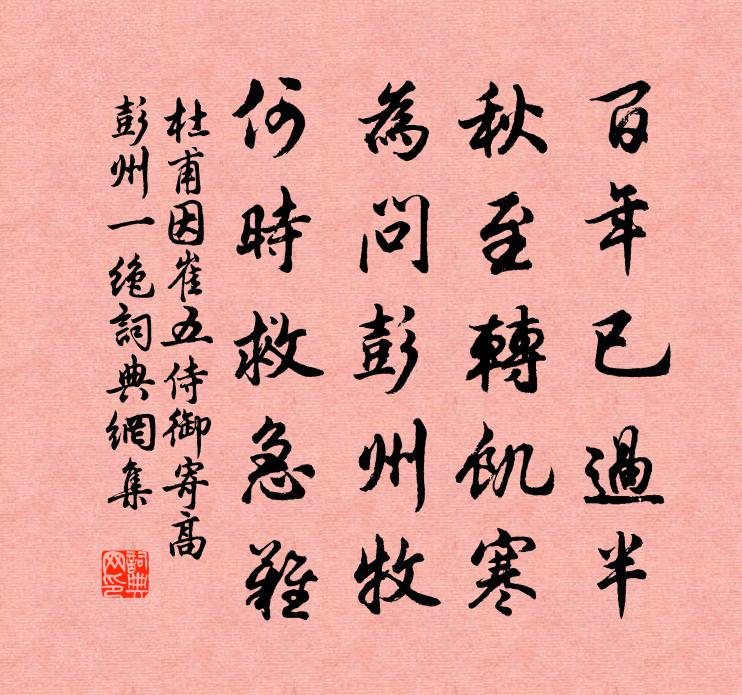 百年已過半
秋至轉飢寒
為問彭州牧
何時救急難
杜甫因崔五侍御寄高
彭州一絶詞典網集
詞典网印